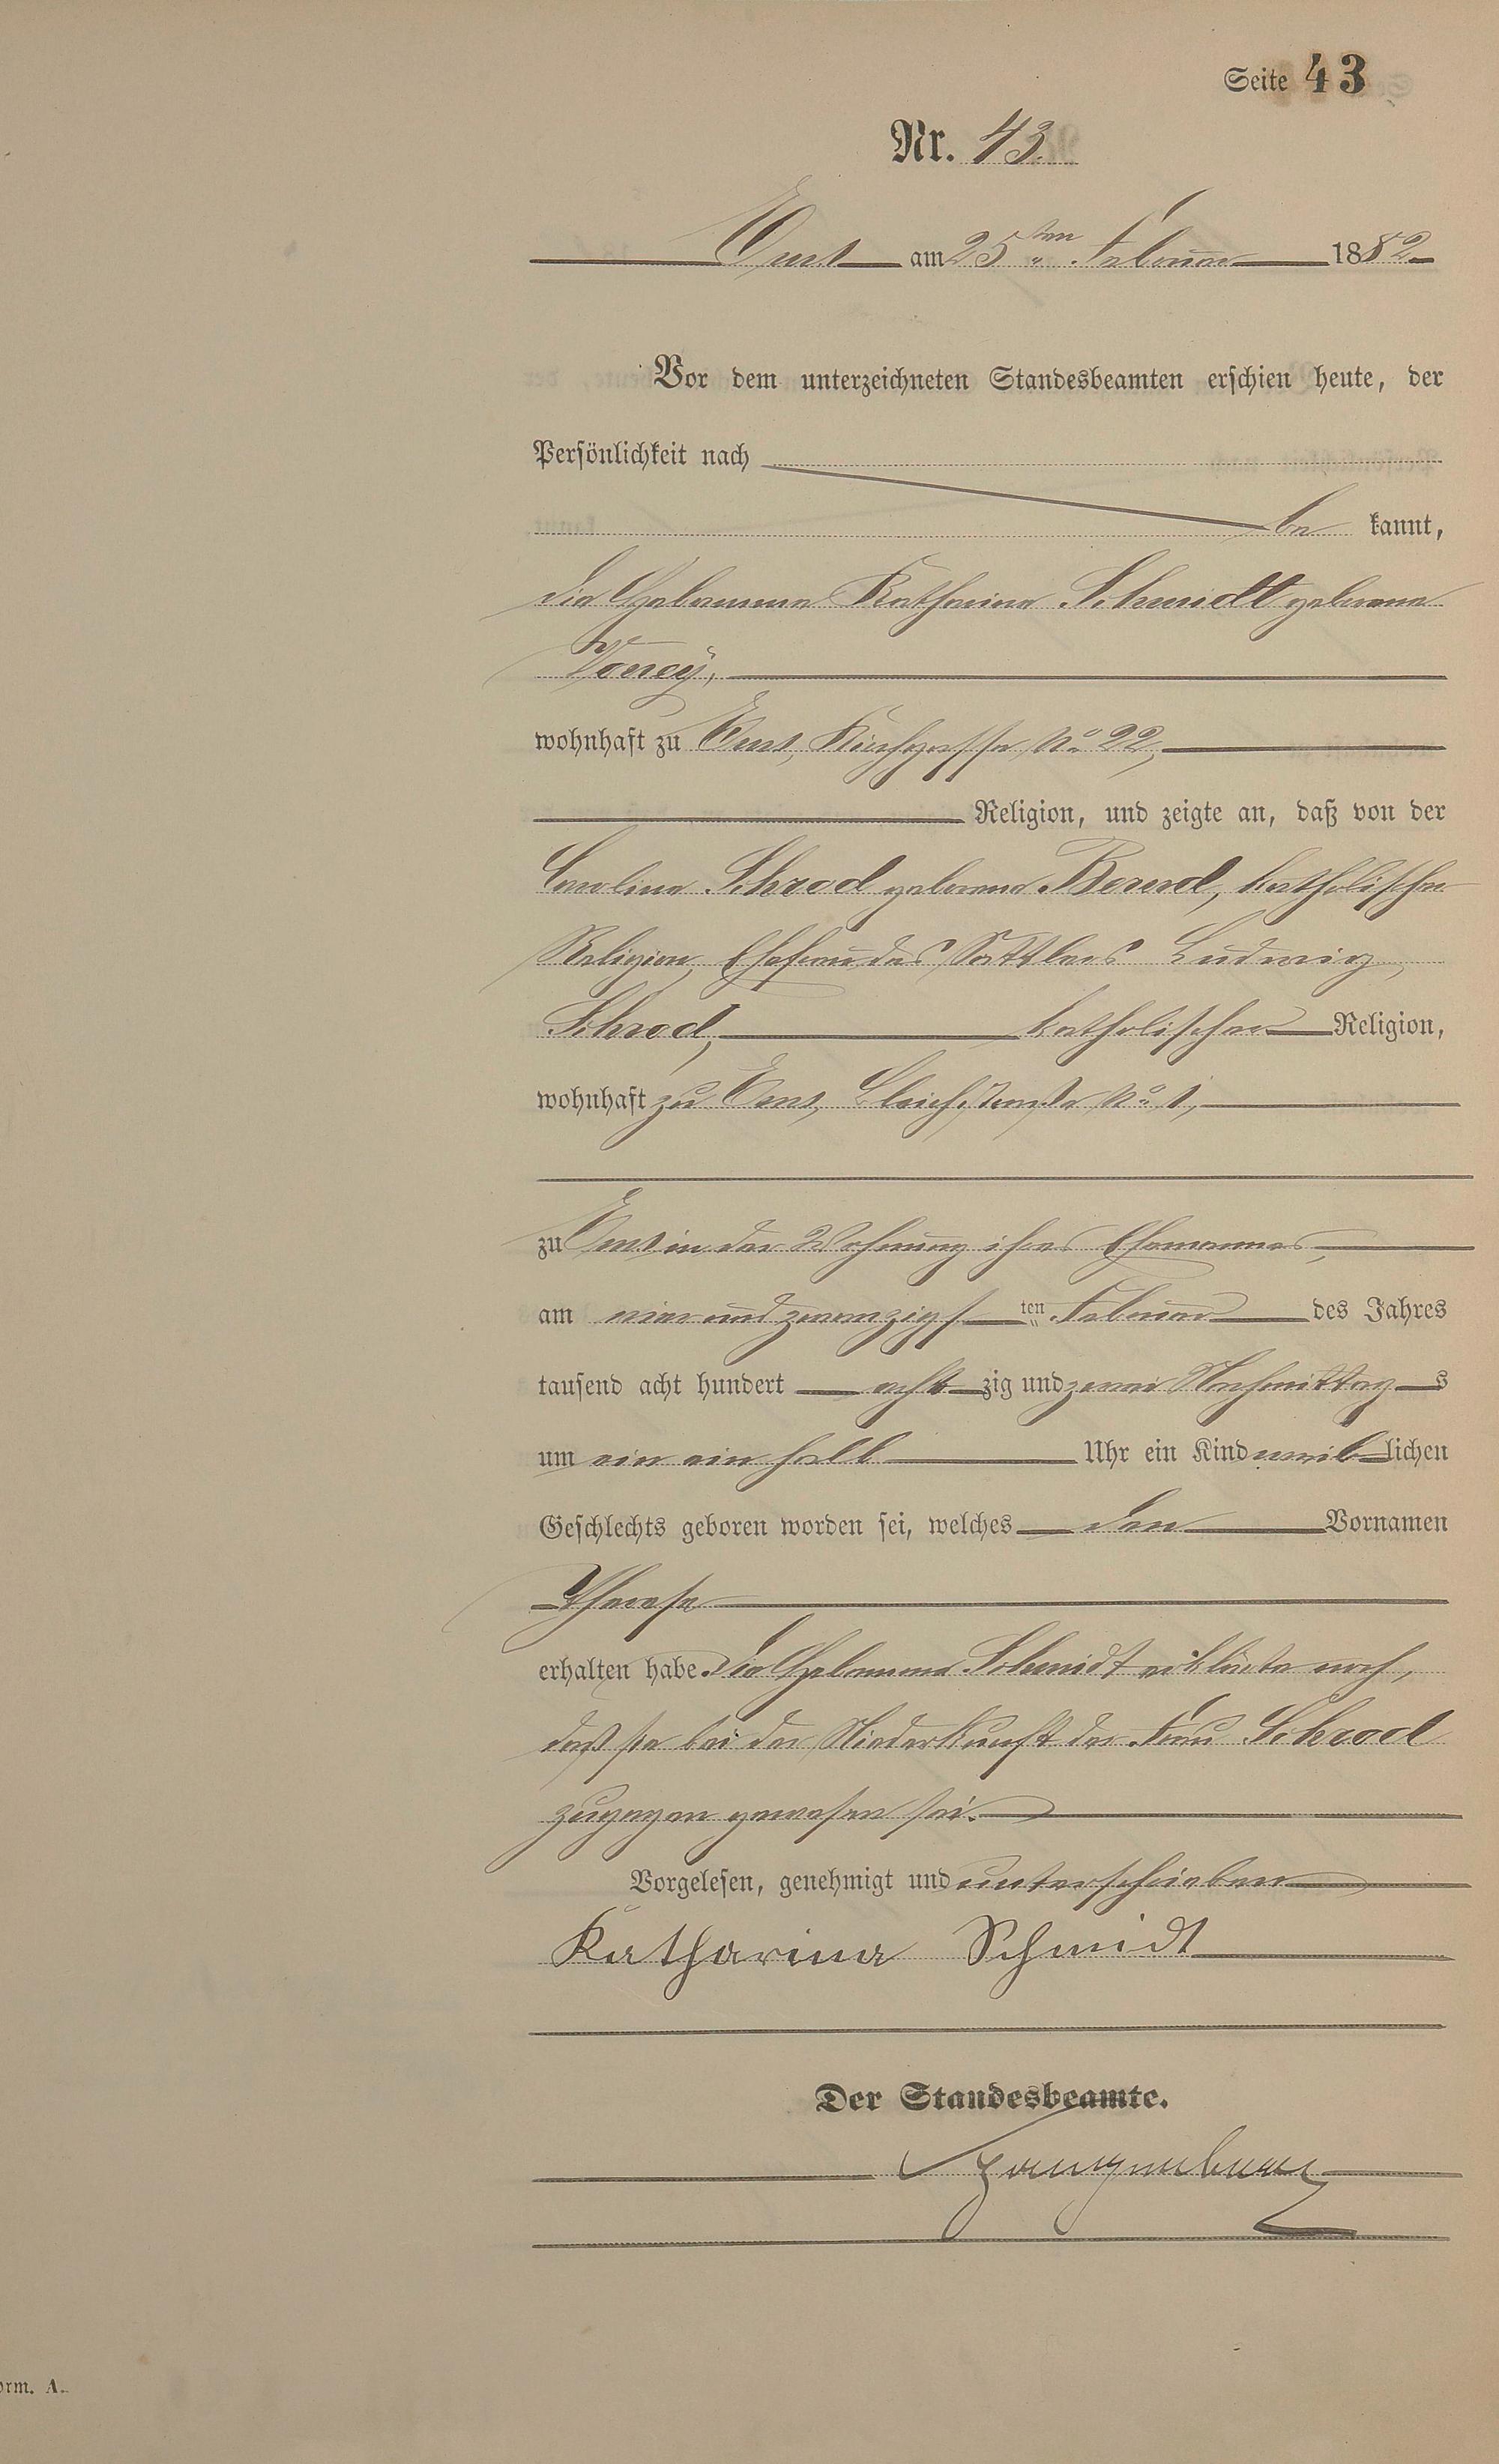 Seite 43
Nr. 43.
Ems am 25ten Februar 1882
Vor dem unterzeichneten Standesbeamten erschien heute, der
Persönlichkeit nach
be kannt,
die Hebamme Katharina Schmidt geborene
wohnhaft zu Ems, Kirchgasse No 22,
Religion, und zeigte an, daß von der
Carolina Schrod geborene Berend, katholischer
Religion, Ehefrau des Sattlers Ludwig
Schrod, katholischer Religion,
wohnhaft zu Ems, Bleichstraße No 1,
zu Ems in der Wohnung ihres Ehemannes,
am vier und zwanzigsten Februar des Jahres
tausend acht hundert acht zig und zwei Nachmittags
um ein ein halb Uhr ein Kind weiblichen
Geschlechts geboren worden sei, welches den Vornamen
Therese
erhalten habe. Die Hebamme Schmidt erklärte noch,
daß sie bei der Niederkunft der Frau Schrod
zugegen gewesen sei.
Vorgelesen, genehmigt und unterschrieben
Katharina Schmidt
Der Standesbeamte.
orm. A.